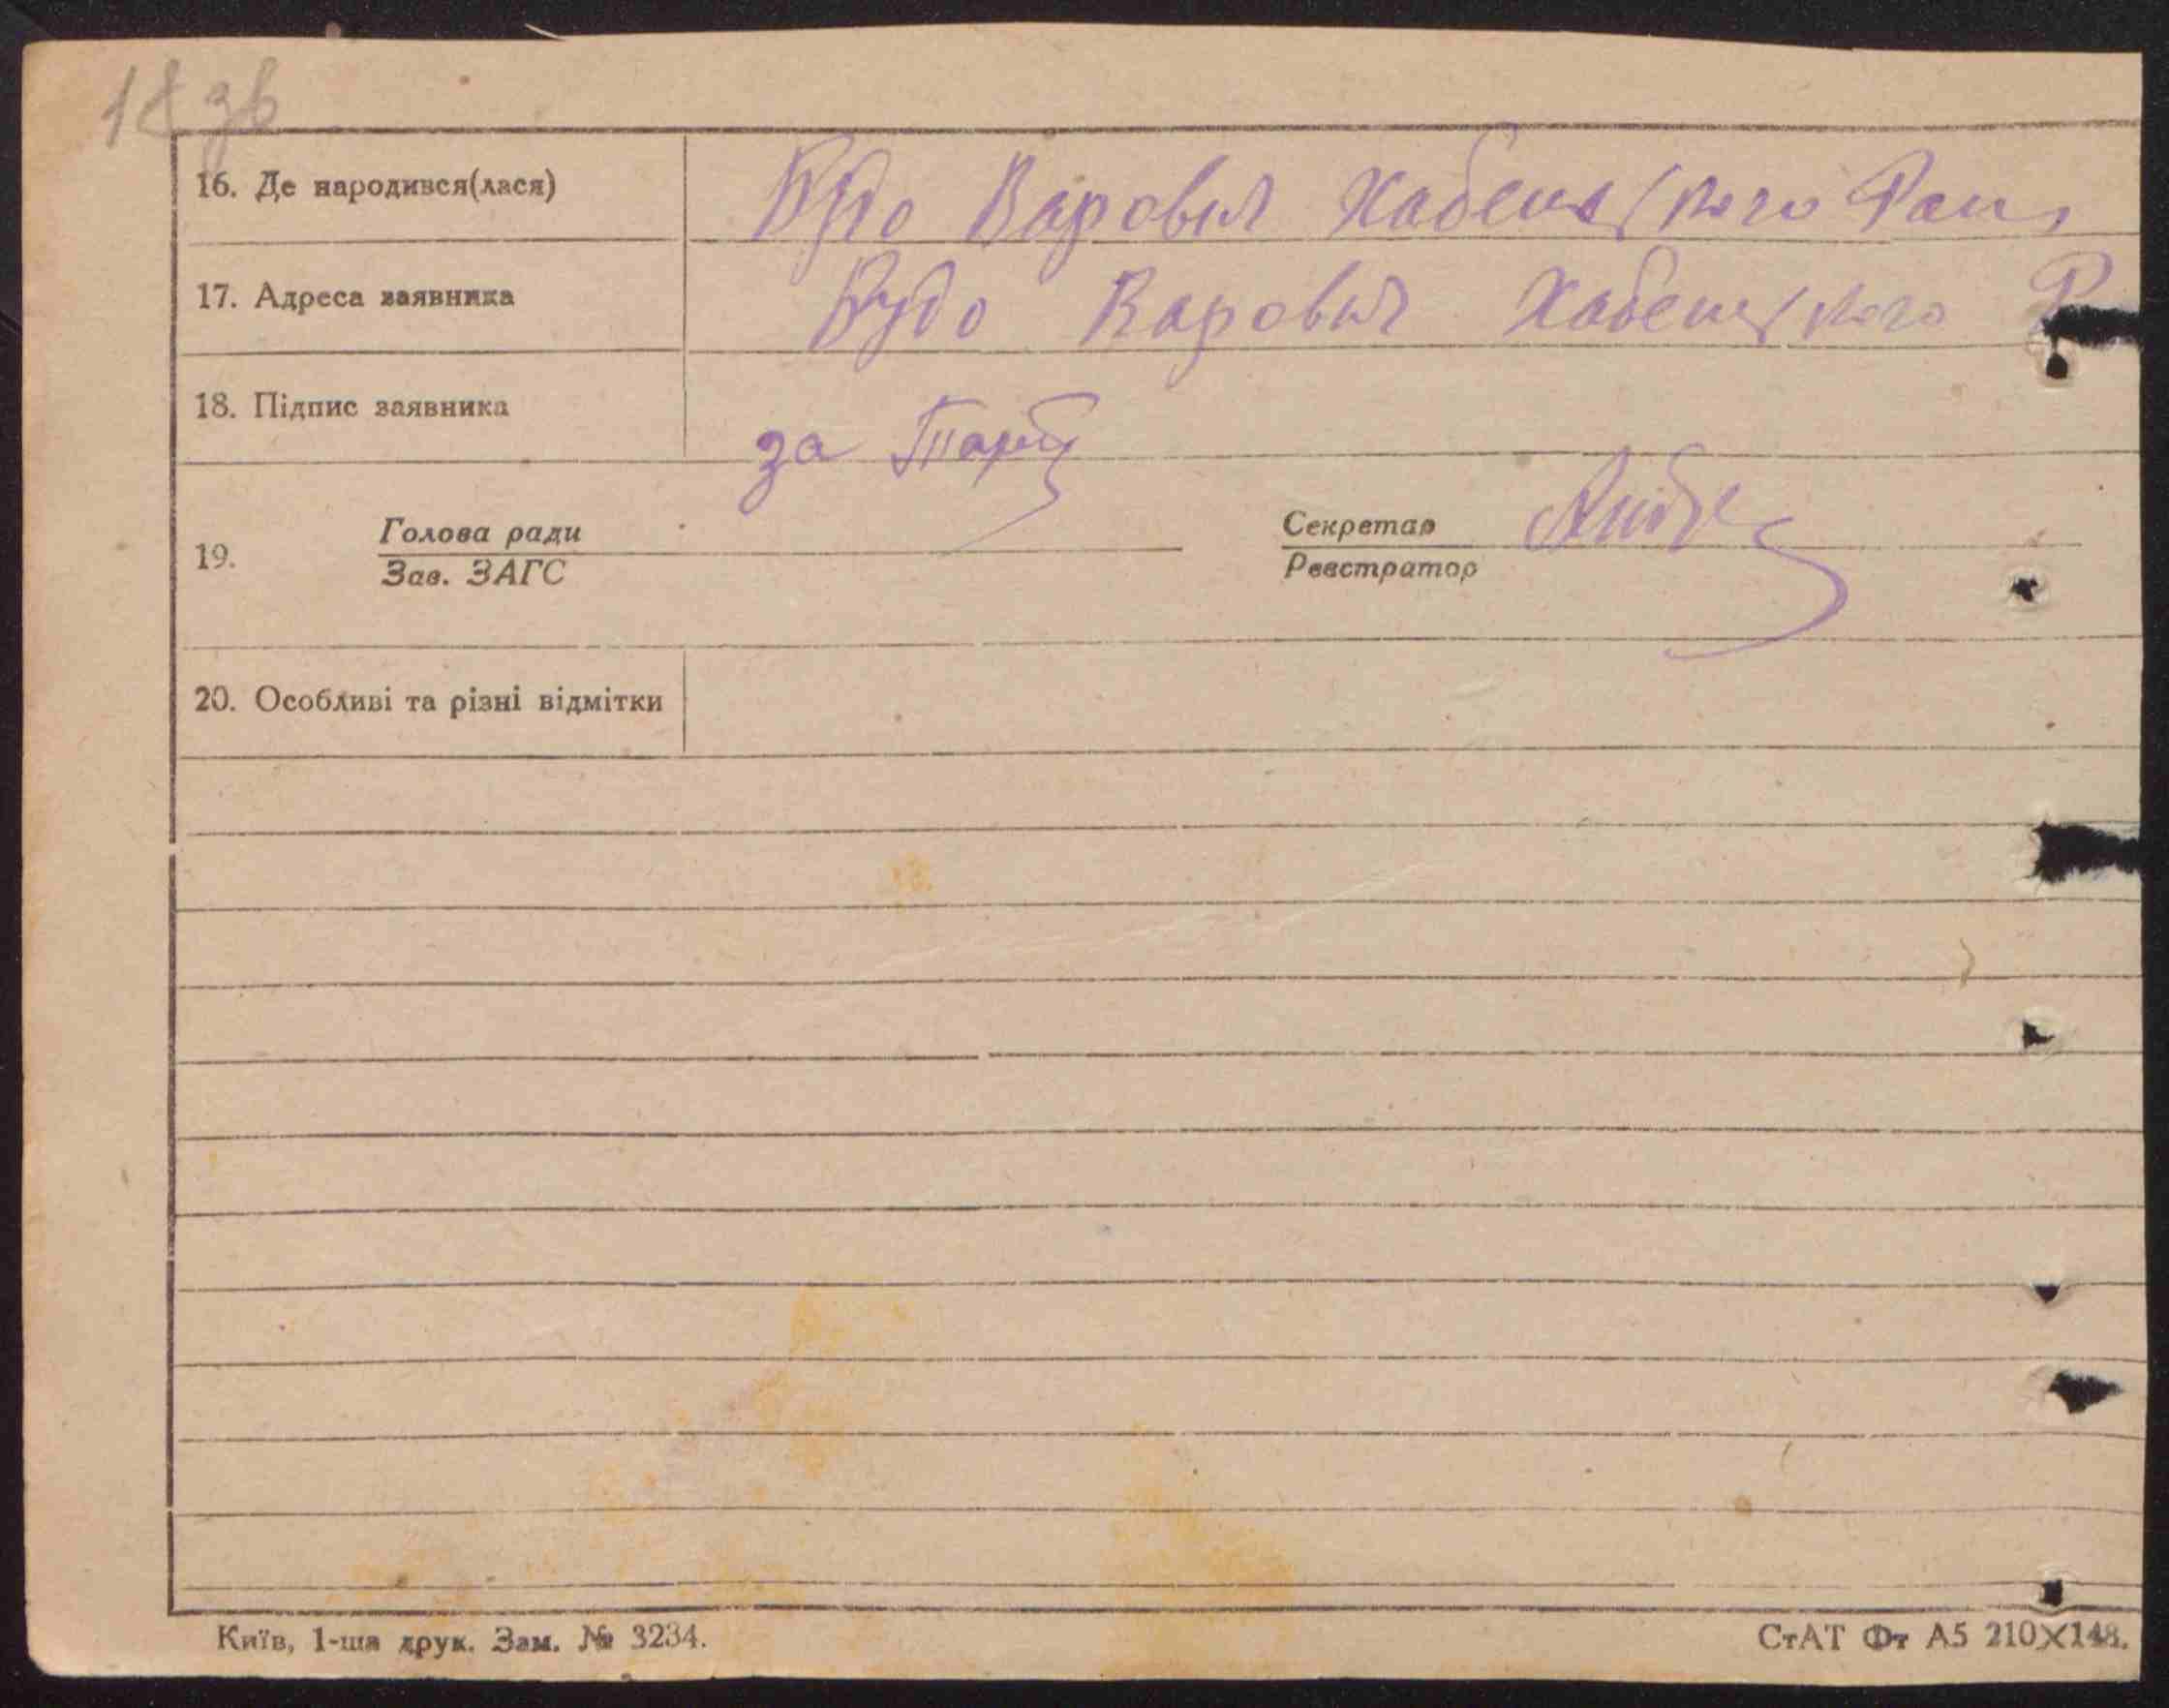 18 зв
16. Де народився(лася) Будо Варовичі Хабенського Рай.
17. Адреса заявника Будо Варовичі Хабенського Р
18. Підпис заявника за
Голова ради Секретар
19.
Зав. ЗАГС Реєстратор
20. Особливі та різні відмітки
Київ, 1-ша друк. Зам. № 3234. СтАТ Фт А5 210×148.